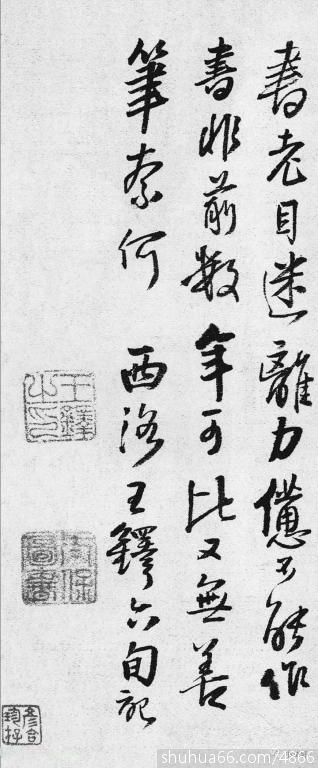 書老目迷離力憊不能作
書非前數年可比又無善
筆奈何 西洛王鐸六旬記
王鐸之印
圖書
彥合珍存
shuhua66.com/4866